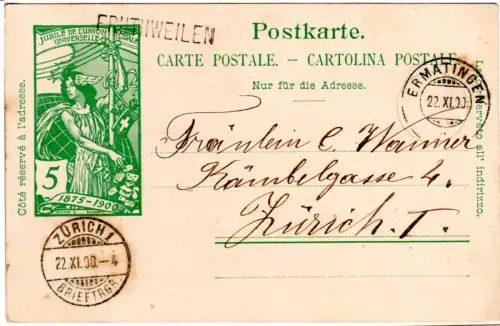 FRUTHWEILEN
Postkarte.
CARTE POSTALE. – CARTOLINA POSTALE.
Nur für die Adresse.
Côté réservé à l'adresse.
Lato riservato all' indirizzo.
JUBILÉ DE L'UNION
UNIVERSELLE
5
1875–1900
ERMATINGEN
22.XI.00.
Fräulein C. Wanner
Kämbelgasse 4.
Zürich. I.
ZÜRICH 1
22.XI.00.–4
BRIEFTRGR.